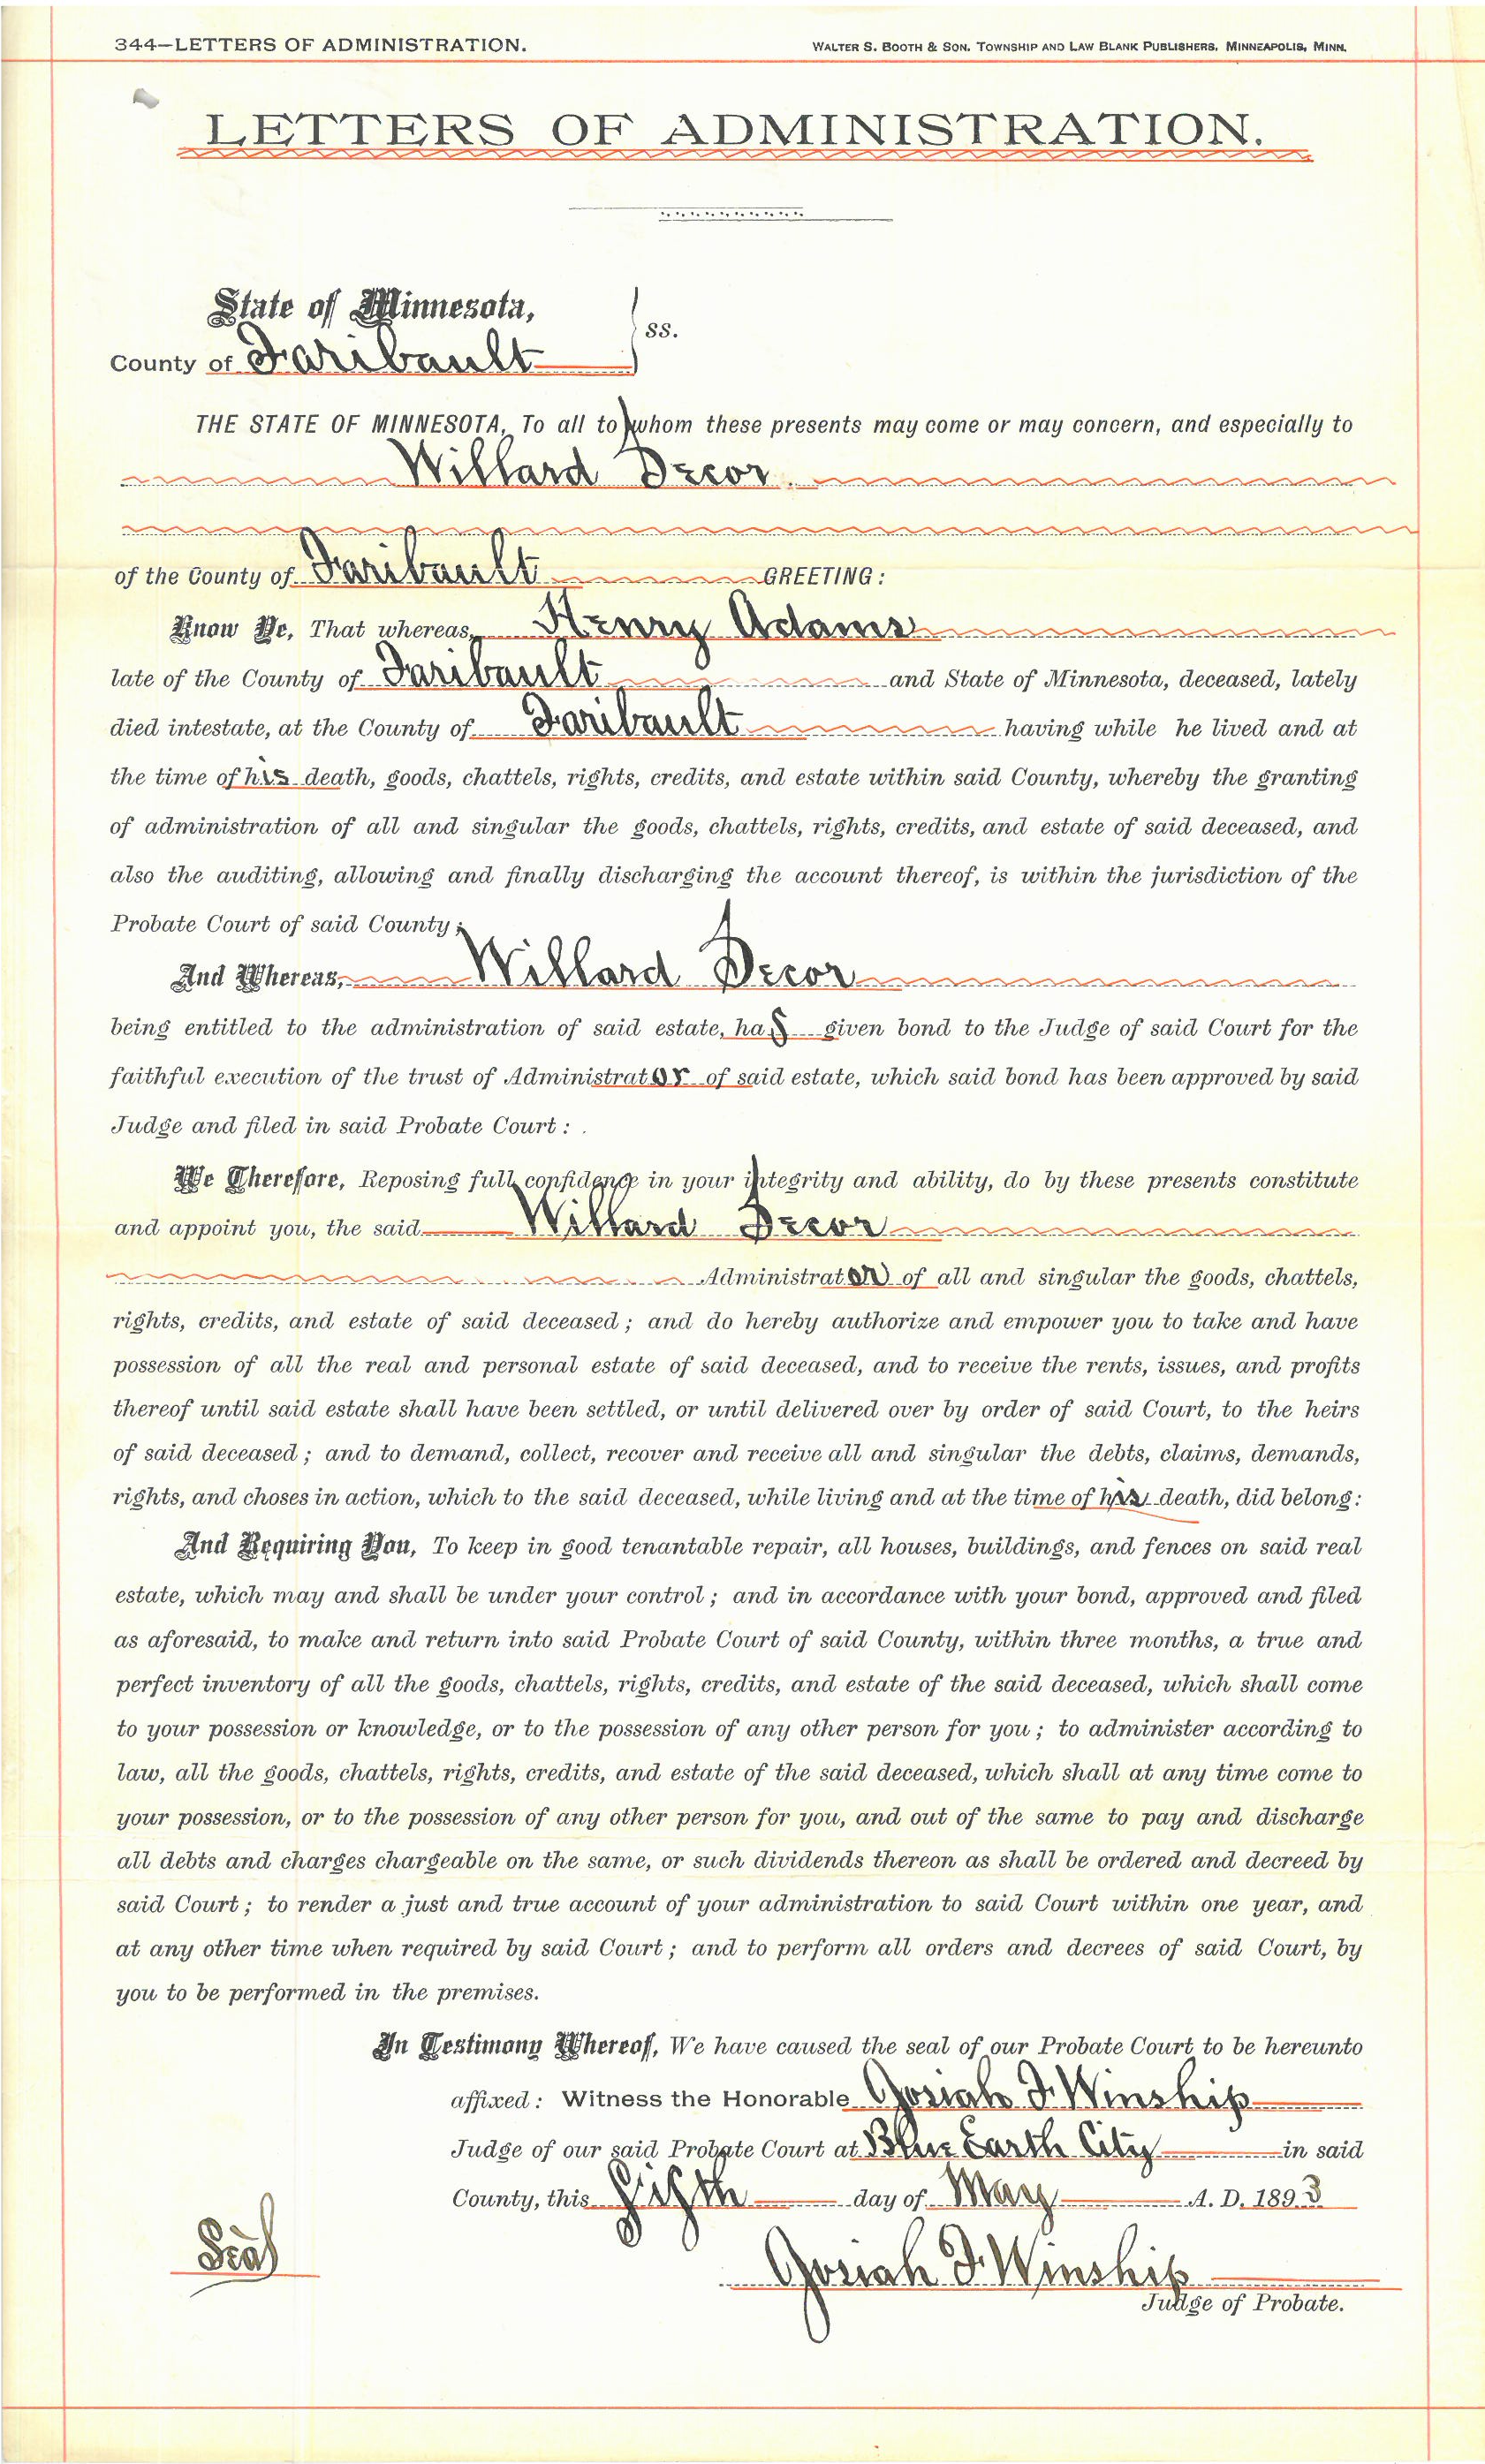 344—LETTERS OF ADMINISTRATION. WALTER S. BOOTH & SON, TOWNSHIP AND LAW BLANK PUBLISHERS, MINNEAPOLIS, MINN.
LETTERS OF ADMINISTRATION.
State of Minnesota,
ss.
County of Faribault
THE STATE OF MINNESOTA, To all to whom these presents may come or may concern, and especially to
Willard Decor
of the County of Faribault GREETING:
Know Ye, That whereas, Henry Adams
late of the County of Faribault and State of Minnesota, deceased, lately
died intestate, at the County of Faribault having while he lived and at
the time of his death, goods, chattels, rights, credits, and estate within said County, whereby the granting
of administration of all and singular the goods, chattels, rights, credits, and estate of said deceased, and
also the auditing, allowing and finally discharging the account thereof, is within the jurisdiction of the
Probate Court of said County;
And Whereas, Willard Decor
being entitled to the administration of said estate, has given bond to the Judge of said Court for the
faithful execution of the trust of Administrator of said estate, which said bond has been approved by said
Judge and filed in said Probate Court:
We Therefore, Reposing full confidence in your integrity and ability, do by these presents constitute
and appoint you, the said Willard Decor
Administrator of all and singular the goods, chattels,
rights, credits, and estate of said deceased; and do hereby authorize and empower you to take and have
possession of all the real and personal estate of said deceased, and to receive the rents, issues, and profits
thereof until said estate shall have been settled, or until delivered over by order of said Court, to the heirs
of said deceased; and to demand, collect, recover and receive all and singular the debts, claims, demands,
rights, and choses in action, which to the said deceased, while living and at the time of his death, did belong:
And Requiring You, To keep in good tenantable repair, all houses, buildings, and fences on said real
estate, which may and shall be under your control; and in accordance with your bond, approved and filed
as aforesaid, to make and return into said Probate Court of said County, within three months, a true and
perfect inventory of all the goods, chattels, rights, credits, and estate of the said deceased, which shall come
to your possession or knowledge, or to the possession of any other person for you; to administer according to
law, all the goods, chattels, rights, credits, and estate of the said deceased, which shall at any time come to
your possession, or to the possession of any other person for you, and out of the same to pay and discharge
all debts and charges chargeable on the same, or such dividends thereon as shall be ordered and decreed by
said Court; to render a just and true account of your administration to said Court within one year, and
at any other time when required by said Court; and to perform all orders and decrees of said Court, by
you to be performed in the premises.
In Testimony Whereof, We have caused the seal of our Probate Court to be hereunto
affixed: Witness the Honorable Josiah F. Winship
Judge of our said Probate Court at Blue Earth City in said
County, this Fifth day of May A. D. 1893
Seal
Josiah F. Winship
Judge of Probate.